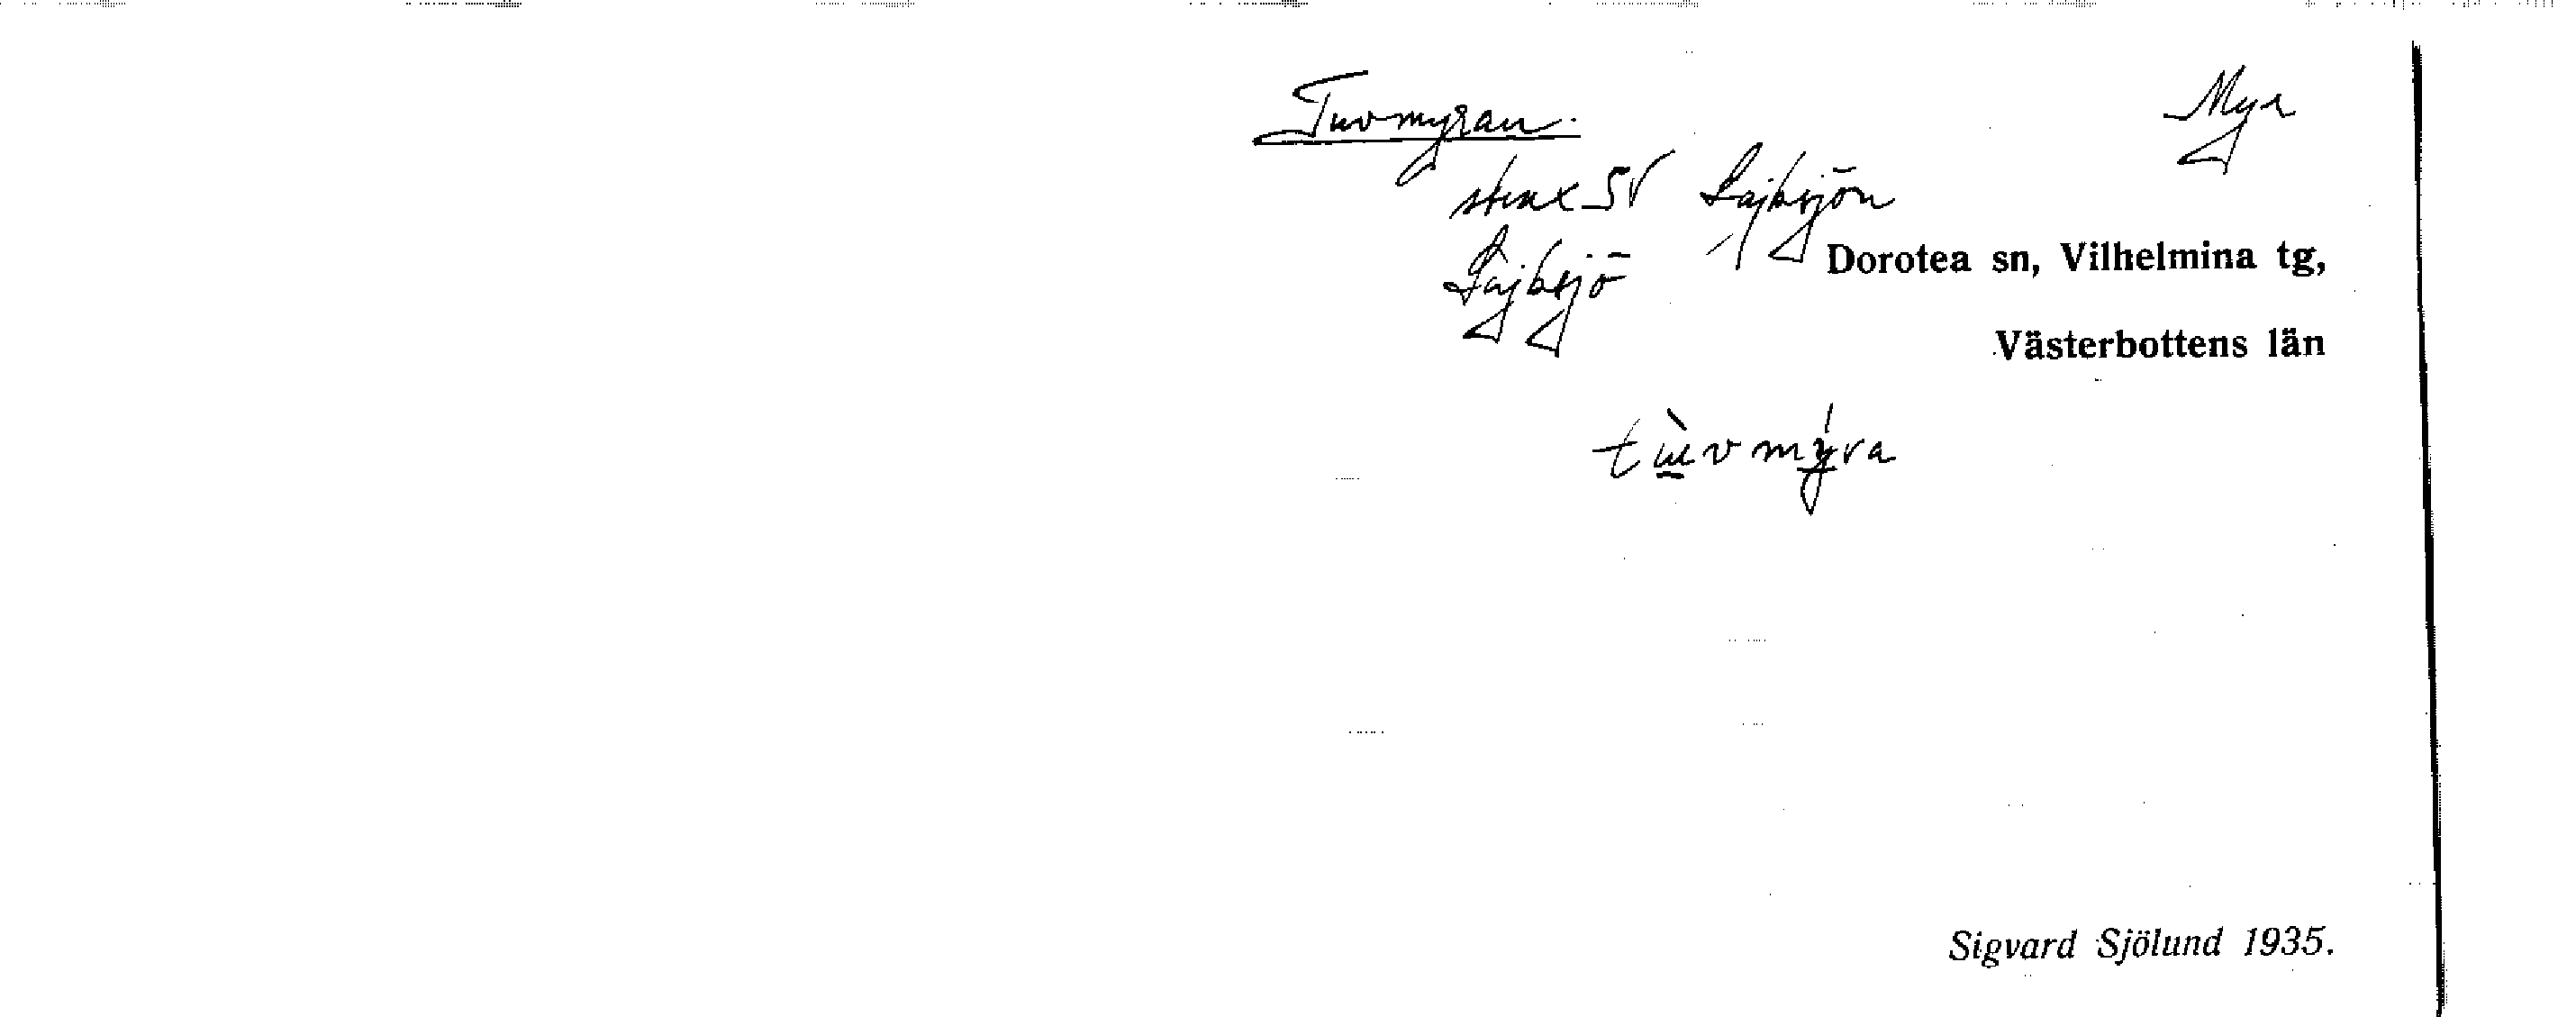 Tuvmyran. Myr
strax SV Lajksjön
Lajksjö
Dorotea sn, Vilhelmina tg,
Västerbottens län
tùvmýra
Sigvard Sjölund 1935.